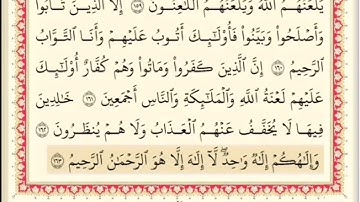 يَلْعَنُهُمُ ٱللَّهُ وَيَلْعَنُهُمُ ٱللَّـٰعِنُونَ ١٥٩ إِلَّا ٱلَّذِينَ تَابُوا۟
وَأَصْلَحُوا۟ وَبَيَّنُوا۟ فَأُو۟لَـٰٓئِكَ أَتُوبُ عَلَيْهِمْ وَأَنَا ٱلتَّوَّابُ
ٱلرَّحِيمُ ١٦٠ إِنَّ ٱلَّذِينَ كَفَرُوا۟ وَمَاتُوا۟ وَهُمْ كُفَّارٌ أُو۟لَـٰٓئِكَ
عَلَيْهِمْ لَعْنَةُ ٱللَّهِ وَٱلْمَلَـٰٓئِكَةِ وَٱلنَّاسِ أَجْمَعِينَ ١٦١ خَـٰلِدِينَ
فِيهَا لَا يُخَفَّفُ عَنْهُمُ ٱلْعَذَابُ وَلَا هُمْ يُنظَرُونَ ١٦٢
وَإِلَـٰهُكُمْ إِلَـٰهٌ وَٰحِدٌ لَّآ إِلَـٰهَ إِلَّا هُوَ ٱلرَّحْمَـٰنُ ٱلرَّحِيمُ ١٦٣